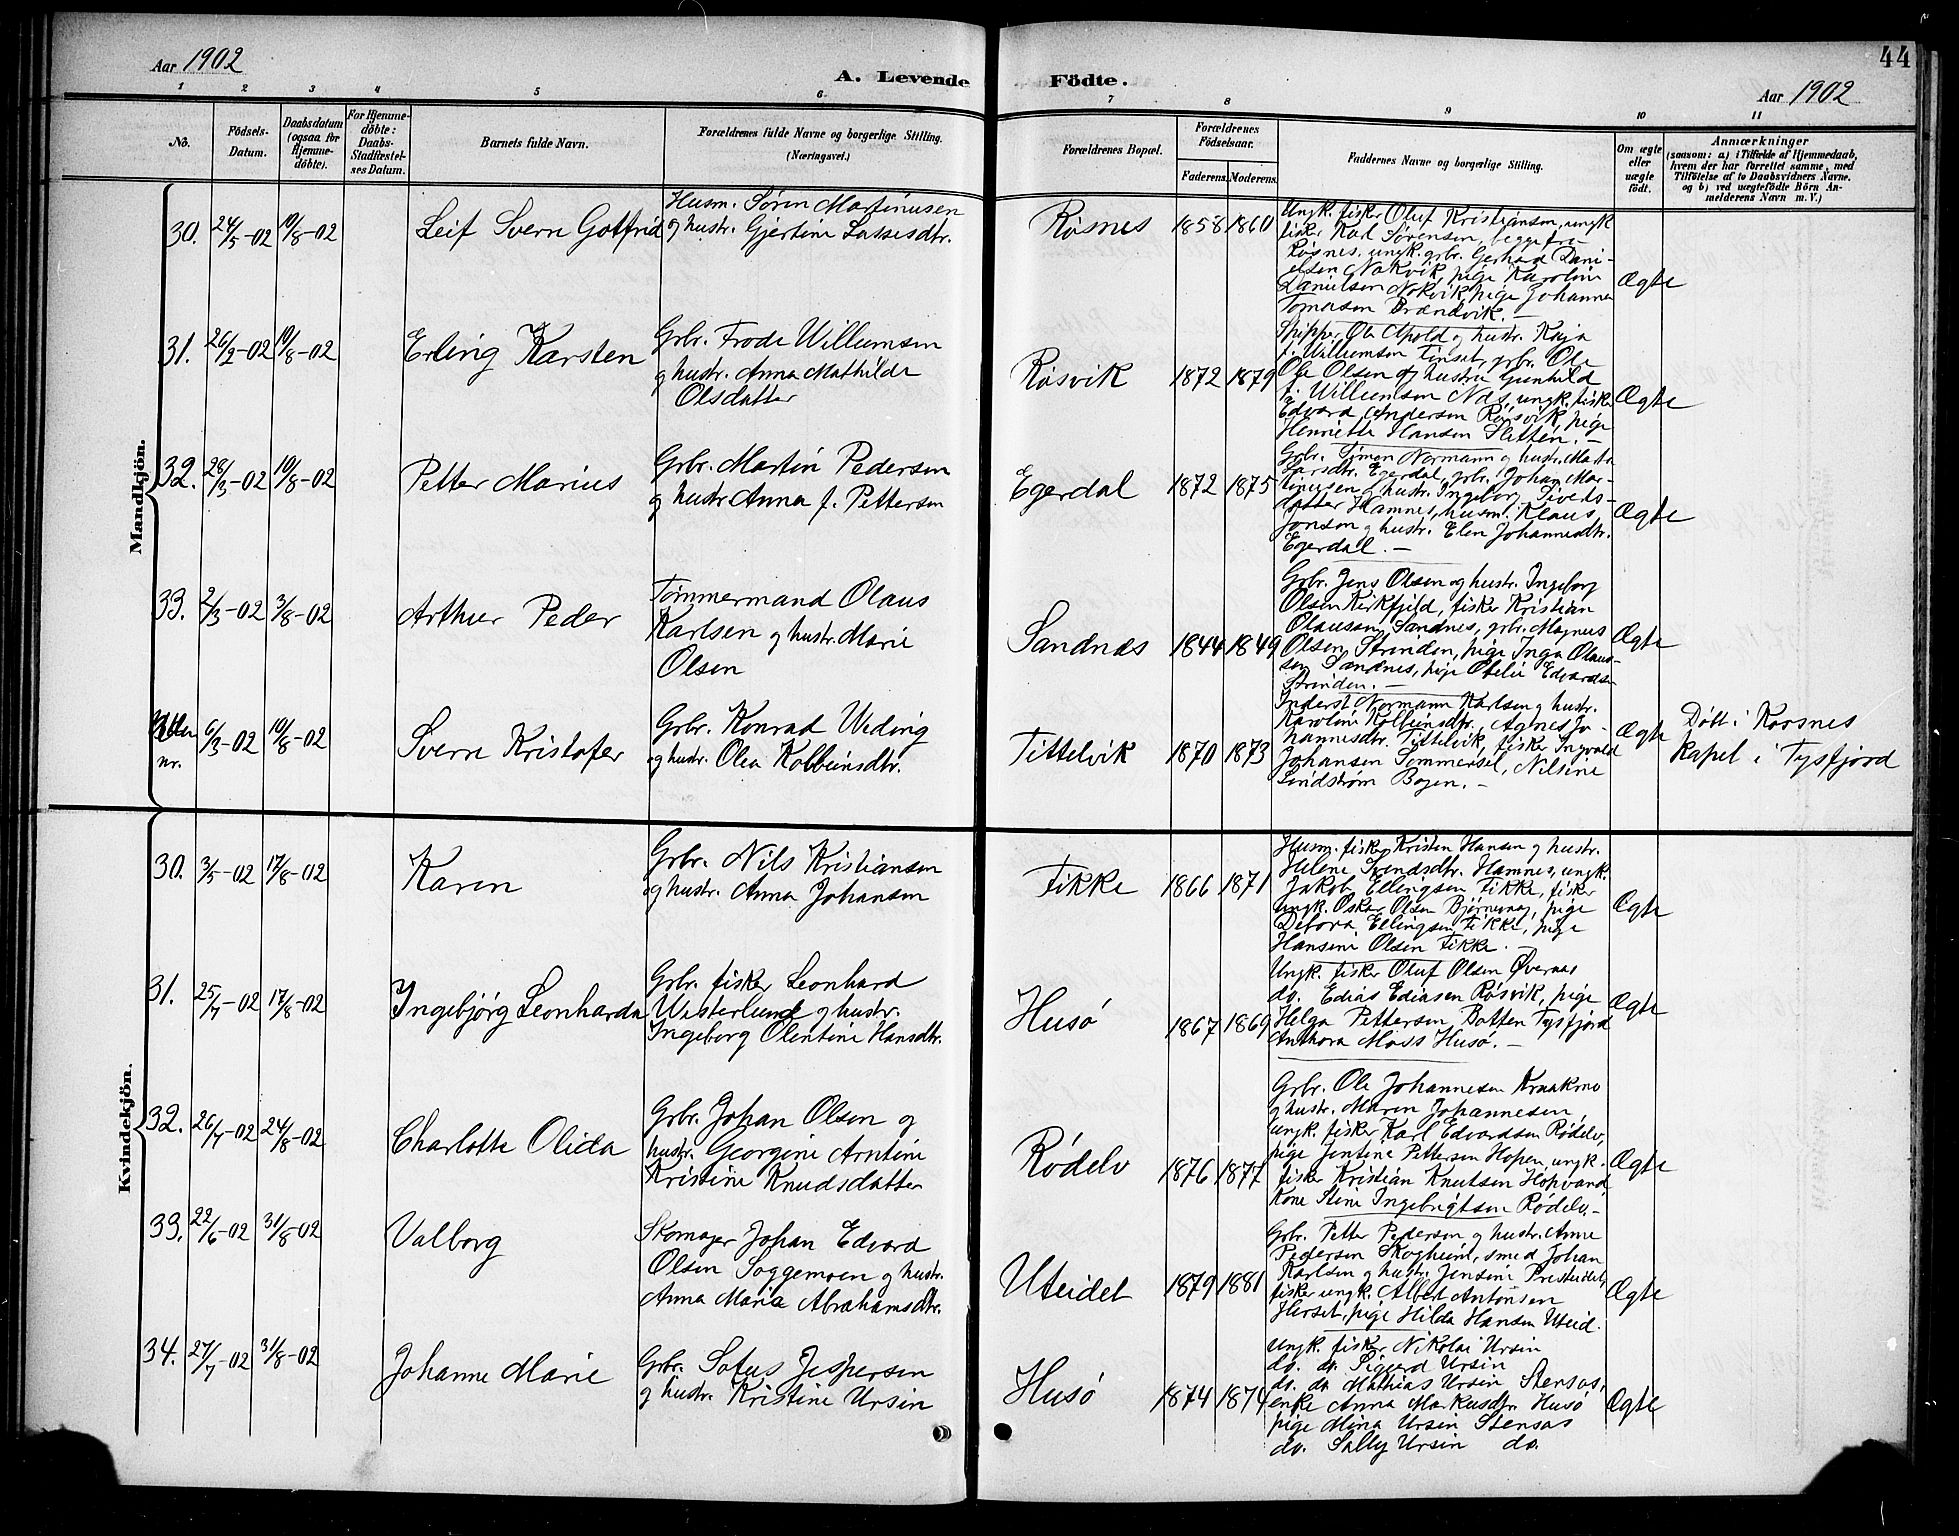 44
Aar 1902
A. Levende Födte.
Aar 1902
1 2 3 4 5 6 7 8 9 10 11
No.
Födsels-
Datum.
Daabsdatum
(ogsaa for
Hjemme-
döbte).
For Hjemme-
döbte:
Daabs-
Stadfæstel-
ses Datum.
Barnets fulde Navn.
Forældrenes fulde Navne og borgerlige Stilling.
(Næringsvei.)
Forældrenes Bopæl.
Forældrenes
Födselsaar.
Faderens. Moderens.
Faddernes Navne og borgerlige Stilling.
Om ægte
eller
uægte
födt.
Anmærkninger
(saasom: a) i Tilfælde af Hjemmedaab,
hvem der har forrettet samme, med
Tilföielse af to Daabsvidners Navne.
og b) ved uægtefödte Börn An-
melderens Navn m. V.)
Mandkjön.
30. 24/5-02 10/8-02 Leif Sverre Gotfrid
Husm. Sören Martinusen
og hustr. Gjertine Lassesdtr.
Røsnes 1858 1860
Ungk. fisker Oluf Kristiansen, ungk
fisker Karl Sörensen, begge fra
Røsnes, ungk. grbr. Gerhard Dani-
elsen Nakvik, pige Karoline
Danielsen Nakvik, pige Johanna
Tomasen Brændvik. -
Ægte
31. 26/2-02 10/8-02 Erling Karsten
Grbr. Frode Willumsen
og hustr. Anna Mathilde
Olsdatter
Røsvik 1872 1879
Skipper Ole Apold og hustr. Kaja
f. Willumsen Tinset, grbr. Ole
Ole Olsen og hustru Gunhild
f. Willumsen Næs, ungk. fisker
Edvard Andersen Røsvik, pige
Henriette Hansen Sletten. -
Ægte
32. 28/3-02 10/8-02 Petter Marius
Grbr. Martin Pedersen
og hustr. Anna f. Pettersen
Egerdal 1872 1875
Grbr. Simon Normann og hustr. Marta
Larsdtr. Egerdal, grbr. Johan Mar-
tinusen og hustr. Ingeborg Siverts-
datter Hamnes, husm. Klaus
Jonsen og hustr. Elen Johannesdtr.
Egerdal. -
Ægte
33. 2/3-02 3/8-02 Arthur Peder
Tømmermand Olaus
Karlsen og hustr. Marie
Olsen
Sandnæs 1844 1849
Grbr. Jens Olsen og hustr. Ingeborg
Olsen Kirkfjeld, fisker Kristian
Olausen Sandnes, grbr. Magnus
Olsen Strinden, pige Inga Olaus-
sen Sandnes, pige Otelie Edvardsen
Strinden. -
Ægte
nr. 6/3-02 10/8-02 Sverre Kristofer
Grbr. Konrad Weding
og hustr. Olea Kolbeinsdtr.
Tittelvik 1870 1873
Inderst Normann Karlsen og hustr.
Karoline Kolbeinsdtr., Agnes Jo-
hannesdtr. Tittelvik, fisker Ingvald
Johansen Sommersel, Nilsine
Lindstrøm Bogen. -
Ægte
Döbt i Korsnes
Kapel i Tysfjord
Kvindekjön.
30. 3/5-02 17/8-02 Karen
Grbr. Nils Kristiansen
og hustr. Anna Johansen
Fikke 1866 1871
Husm. fisker Kristen Hansen og hustr.
Helene Svendsdtr. Hamnes, ungk.
Jakob Ellingsen Fikke, fisker
ungk. Oskar Olsen Bjørnevag, pige
Debora Ellingsen Fikke, pige
Hansine Olsen Fikke. -
Ægte
31. 25/7-02 17/8-02 Ingebjörg Leonharda
Grbr. fisker Leonhard
Westerlund og hustr.
Ingeborg Olentine Hansdtr.
Husö 1867 1869
Ungk. fisker Oluf Olsen Øvernæs
do. Edias Ediasen Røsvik, pige
Helga Pettersen Botten Tysfjord
Anthora Moss Husö. -
Ægte
32. 26/7-02 24/8-02 Charlotte Olida
Grbr. Johan Olsen og
hustr. Georgine Arntine
Kristine Knudsdatter
Rödelv 1876 1877
Grbr. Ole Johannesen Kraakmo
og hustr. Maren Johannesen,
ungk. fisker Karl Edvardsen Rödelv,
pige Jentine Pettersen Hopen, ungk.
fisker Kristian Knutsen Hopvand,
Kone Stine Ingebrigtsen Rödelv. -
Ægte
33. 22/6-02 31/8-02 Valborg
Skomager Johan Edvard
Olsen Soggemoen og hustr.
Anna Maria Abrahamsdtr.
Uteidet 1879 1881
Grbr. Petter Pedersen og hustr. Anne
Pedersen Skogheim, smed Johan
Karlsen og hustr. Jensine Presteidet,
fisker ungk. Albert Antonsen
Herset, pige Hilda Hansen Uteid.
Ægte
34. 27/7-02 31/8-02 Johanne Marie
Grbr. Sofus Jespersen
og hustr. Kristine Ursin
Husö 1874 1874
Ungk. fisker Nikolai Ursin
do. do. Sigurd Ursin
do. do. Mathias Ursin Stensøs,
enke Anna Markusdtr. Husö
pige Mina Ursin Stensøs
do. Sally Ursin do.
Ægte